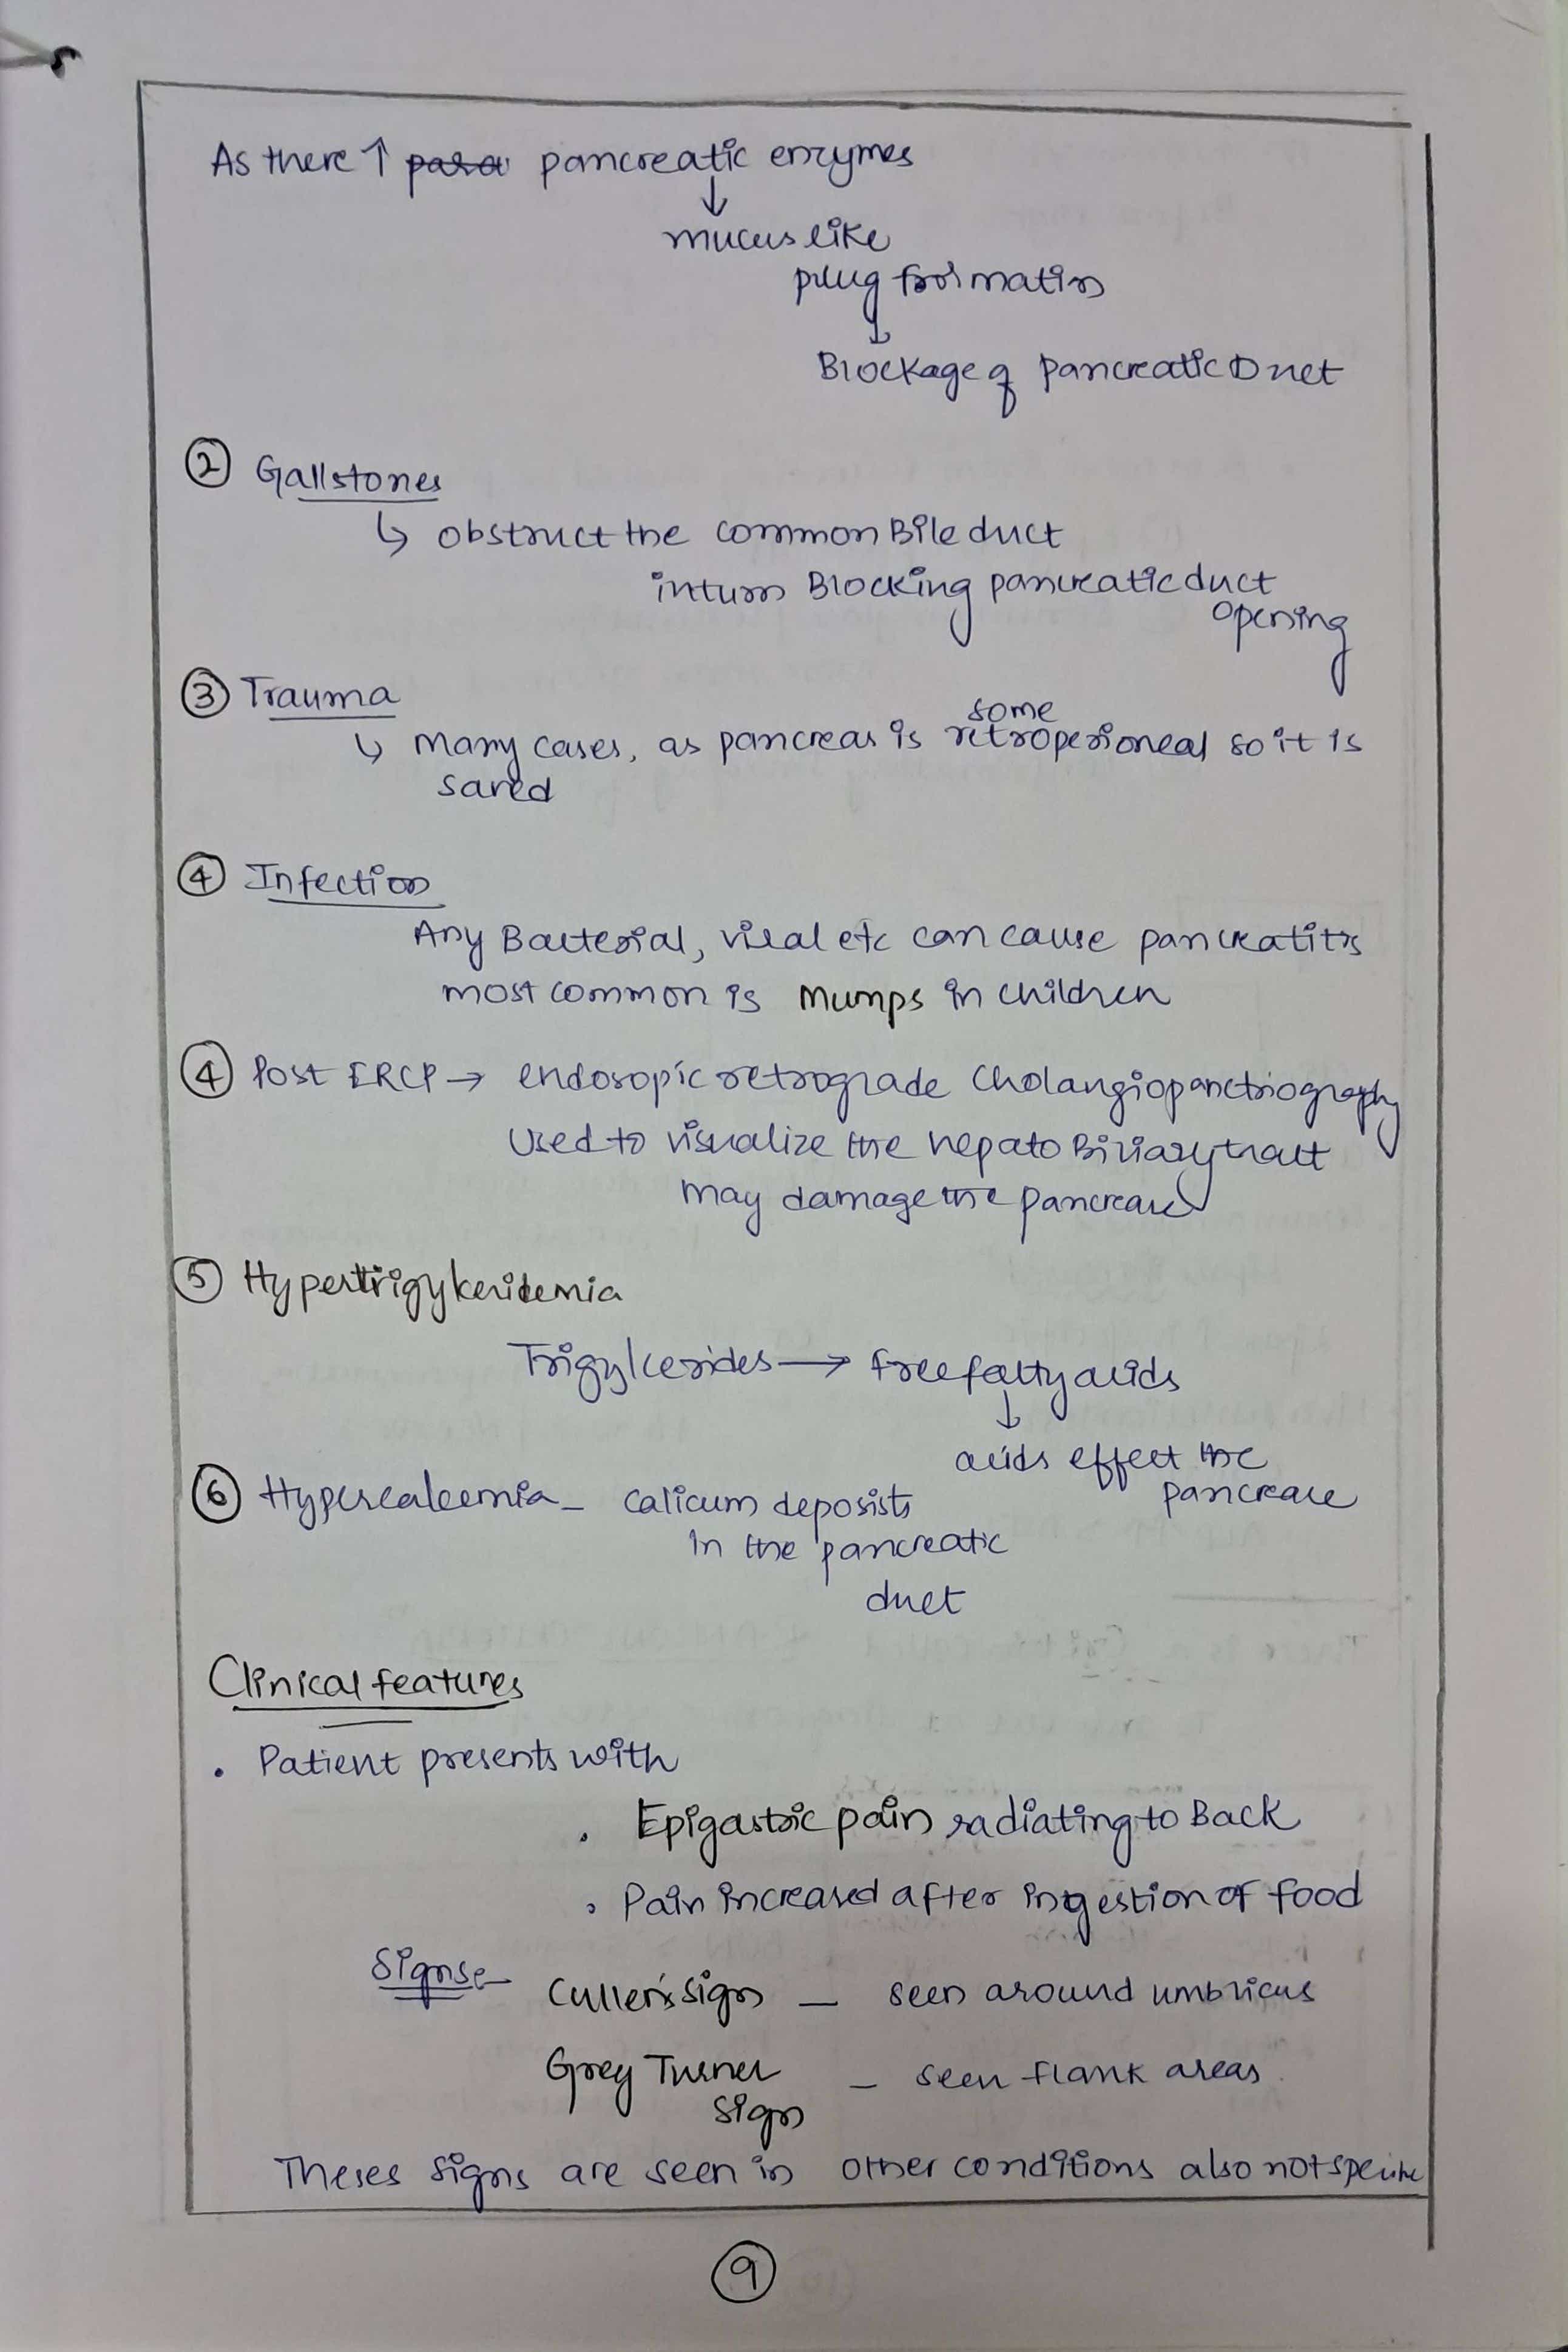 As there ↑ para pancreatic enzymes
↓
mucus like
plug formation
↓
Blockage of pancreatic Duct
② Gallstones
↳ obstruct the common Bile duct
inturn Blocking pancreatic duct
opening
③ Trauma
some
↳ Many cases, as pancreas is retroperioneal so it is
saved
④ Infection
Any Bacterial, viral etc can cause pancreatitis
most common is Mumps in children
④ Post ERCP → endosopic retrograde Cholangiopanctriography
Used to visualize the hepato Biliary tract
may damage the pancreas
⑤ Hypertrigylceridemia
Trigylcerides → free fatty acids
↓
acids effect the
pancreas
⑥ Hypercalcemia - calicum deposists
In the pancreatic
duct
Clinical features
• Patient presents with
• Epigastric pain radiating to Back
• Pain increased after ingestion of food
Signs:-
Cullen's sign - seen around umblicus
Grey Turner - seen flank areas
sign
Theses signs are seen in other conditions also not specific
⑨